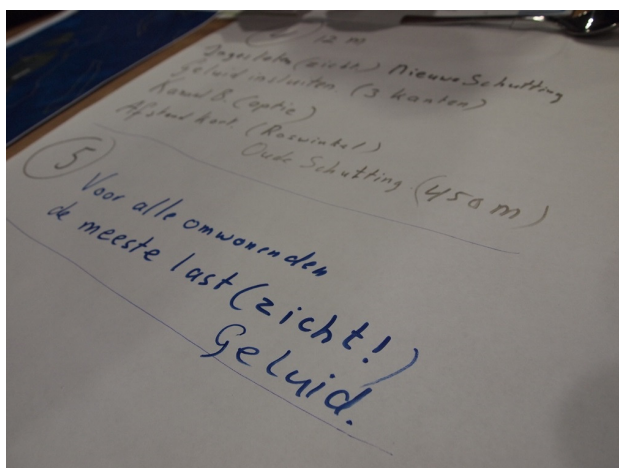 ④ 12 m
Ingesloten (zicht) Nieuwe Schutting
Geluid insluiten (3 kanten)
Kanaal B. (optie)
Afstand kort. (Roswinkel)
Oude Schutting (450 m)
⑤
Voor alle omwonenden
de meeste last (zicht!)
Geluid.